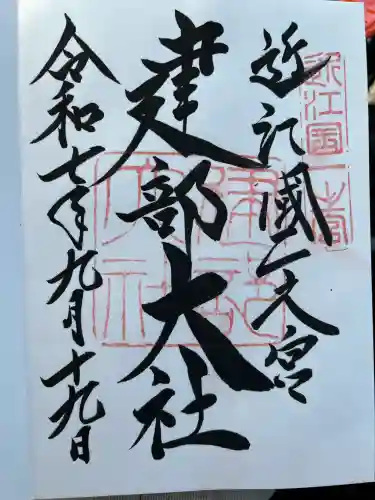 近江國一之宮
建部大社
令和七年九月十九日
近江国一之宮
建部大社